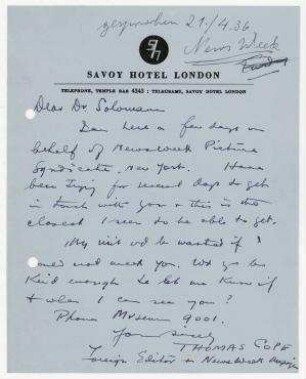 gesprochen 21/4.36
News Week
SAVOY HOTEL LONDON
TELEPHONE, TEMPLE BAR 4343 : TELEGRAMS, SAVOY HOTEL LONDON
Dear Dr. Solomon
I am here a few days on
behalf of Newsweek Picture
Syndicate, New York. Have
been trying for several days to get
in touch with you & this is the
closest I seem to be able to get.
My visit wd be wasted if I
could not meet you. Wd you be
kind enough to let me know if
& when I can see you?
Phone Museum 9001.
Yours sincerely
THOMAS COPE
Foreign Editor Newsweek